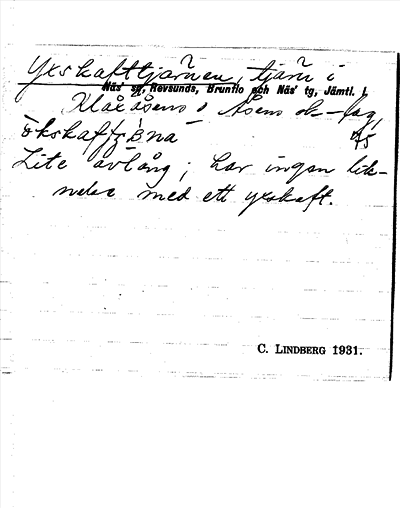 Yxskafttjärnen, tjärn i
Näs' sn, Revsunds, Brunflo och Näs' tg, Jämtl. l.
Klaxåsens o Åsens sk-lag,
ökskaft
Lite avlång; har ingen lik-
nelse med ett yxskaft.
C. LINDBERG 1931.